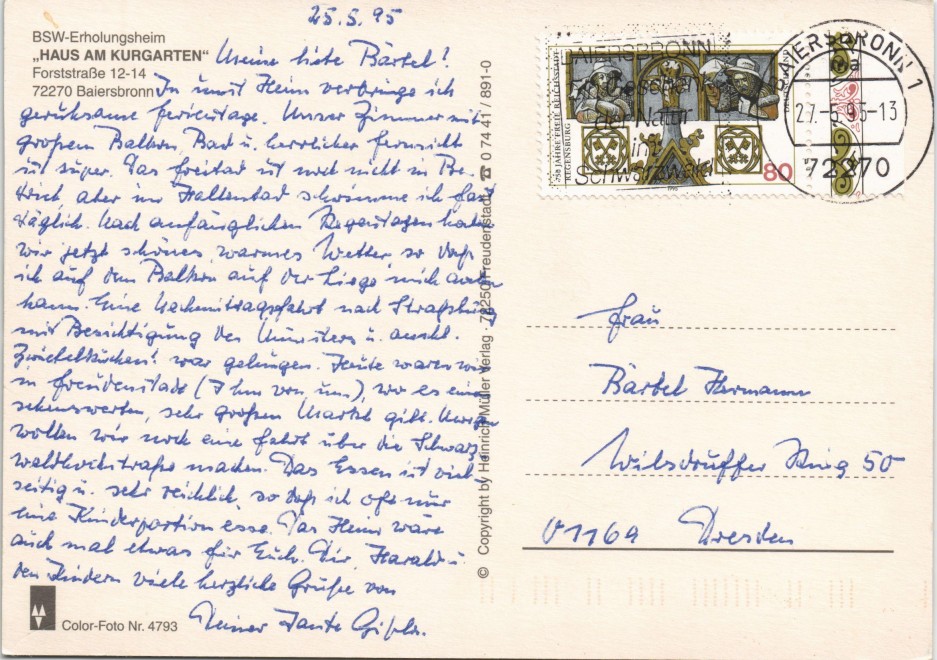 25.5.95
BSW-Erholungsheim
„HAUS AM KURGARTEN"
Forststraße 12-14
72270 Baiersbronn
Meine liebe Bärtel!
In unserem Heim verbringe ich
geruhsame Ferientage. Unser Zimmer mit
großem Balkon, Bad u. herrlicher Fernsicht
ist super. Das Freibad ist noch nicht in Be-
trieb aber im Hallenbad schwimme ich fast
täglich. Nach anfänglichen Regentagen haben
wir jetzt schönes, warmes Wetter, so daß
ich auf dem Balkon auf der Liege mich aalen
kann. Eine Nachmittagsfahrt nach Straßburg
mit Besichtigung des Münsters u. anschl.
Zwiebelkuchen! war gelungen. Heute waren wir
in Freudenstadt (7 km von uns), wo es einen
sehenswerten, sehr großen Markt gibt. Morgen
wollen wir noch eine Fahrt über die Schwarz-
waldhochstraße machen. Das Essen ist viel-
seitig u. sehr reichlich, so daß ich oft nur
eine Kinderportion esse. Das Heim wäre
auch mal etwas für Euch. Dir, Harald u.
den Kindern viele herzliche Grüße von
Deiner Tante Gisela.
Color-Foto Nr. 4793
© Copyright by Heinrich Müller Verlag · 72250 Freudenstadt ☎ 0 74 41 / 891-0
BAIERSBRONN
der Natur
im
Schwarzwald
750 JAHRE FREIE REICHSSTADT
REGENSBURG
80
1995
BAIERSBRONN 1
a
27.-5.95-13
72270
Frau
Bärtel Hermann
Wilsdruffer Ring 50
01169 Dresden